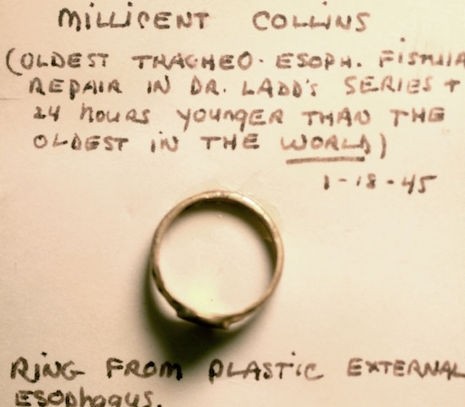 MILLICENT COLLINS
(OLDEST TRACHEO-ESOPH. FISTULA
REPAIR IN DR. LADD'S SERIES +
24 HOURS YOUNGER THAN THE
OLDEST IN THE WORLD)
1-18-45
RING FROM PLASTIC EXTERNAL
ESOPHAGUS.